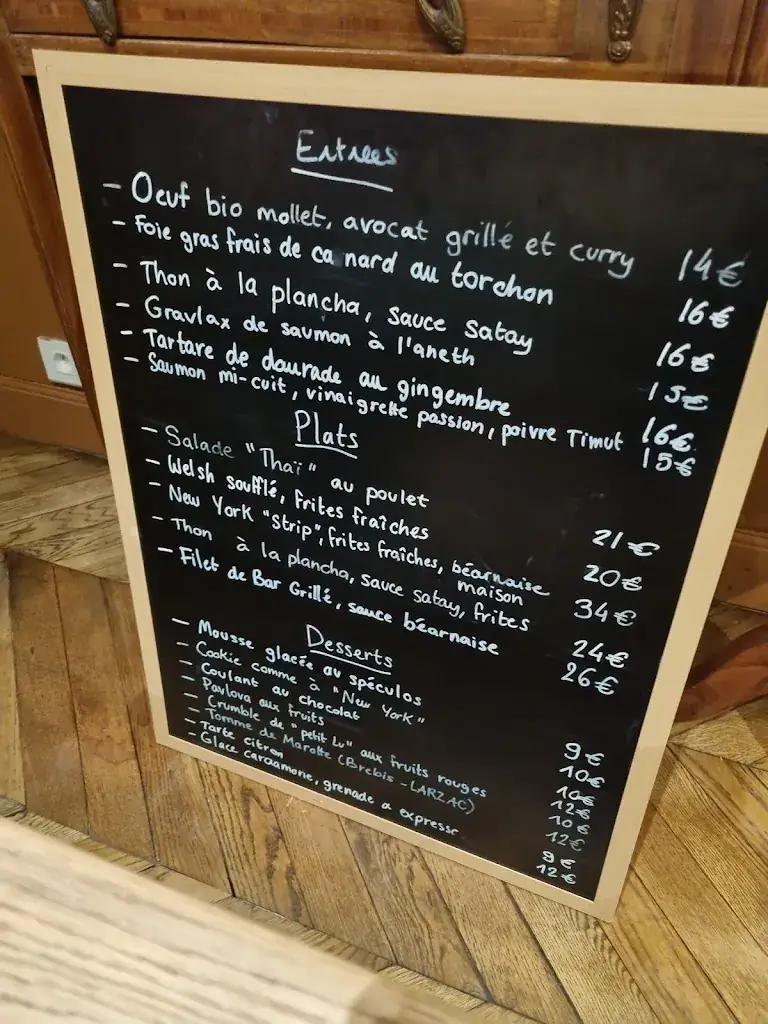 Entrees
- Oeuf bio mollet, avocat grillé et curry 14€
- Foie gras frais de canard au torchon 16€
- Thon à la plancha, sauce satay 16€
- Gravlax de saumon à l'aneth 15€
- Tartare de daurade au gingembre 16€
- Saumon mi-cuit, vinaigrette passion, poivre Timut 15€
Plats
- Salade "Thaï" au poulet 21€
- Welsh soufflé, frites fraîches 20€
- New York "strip", frites fraîches, béarnaise
maison 34€
- Thon à la plancha, sauce satay, frites 24€
- Filet de Bar Grillé, sauce béarnaise 26€
Desserts
- Mousse glacée au spéculos 9€
- Cookie comme à "New York" 10€
- Coulant au chocolat 10€
- Pavlova aux fruits 12€
- Crumble de "petit Lu" aux fruits rouges 10€
- Tomme de Marotte (Brebis - LARZAC) 12€
- Tarte citron 9€
- Glace cardamone, grenade & expresse 12€